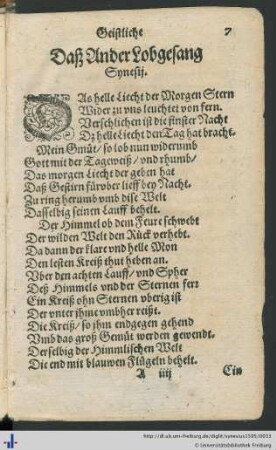 Geistliche 7
Daß Ander Lobgesang
Synesij.
DAs helle Liecht der Morgen Stern
Wider zu vns leuchtet von fern.
Verschlichen ist die finster Nacht
Dz helle Liecht den Tag hat bracht.
Mein Gmüt / so lob nun widerumb
Gott mit der Tageweiß / vnd rhumb /
Das morgen Liecht der geben hat
Daß Gestirn fürober lieff bey Nacht.
Zu ring herumb vmb dise Welt
Dasselbig seinen Lauff behelt.
Der Himmel ob dem Feur e schwebt
Der wilden Welt den Rück verhebt.
Da dann der klare vnd helle Mon
Den lesten Kreiß thut heben an.
Vber den achten Lauff / vnd Spher
Deß Himmels vnd der Sternen fer:
Ein Kreiß ohn Sternen vberig ist
Der vnter jhme vmbher reißt.
Die Kreiß / so jhm endgegen gehend
Vmb das groß Gemüt werden gewendt.
Derselbig der Himmlischen Welt
Die end mit blawen Flügeln behelt.
A iiij Ein
http://dl.ub.uni-freiburg.de/diglit/synesius1595/0033
© Universitätsbibliothek Freiburg